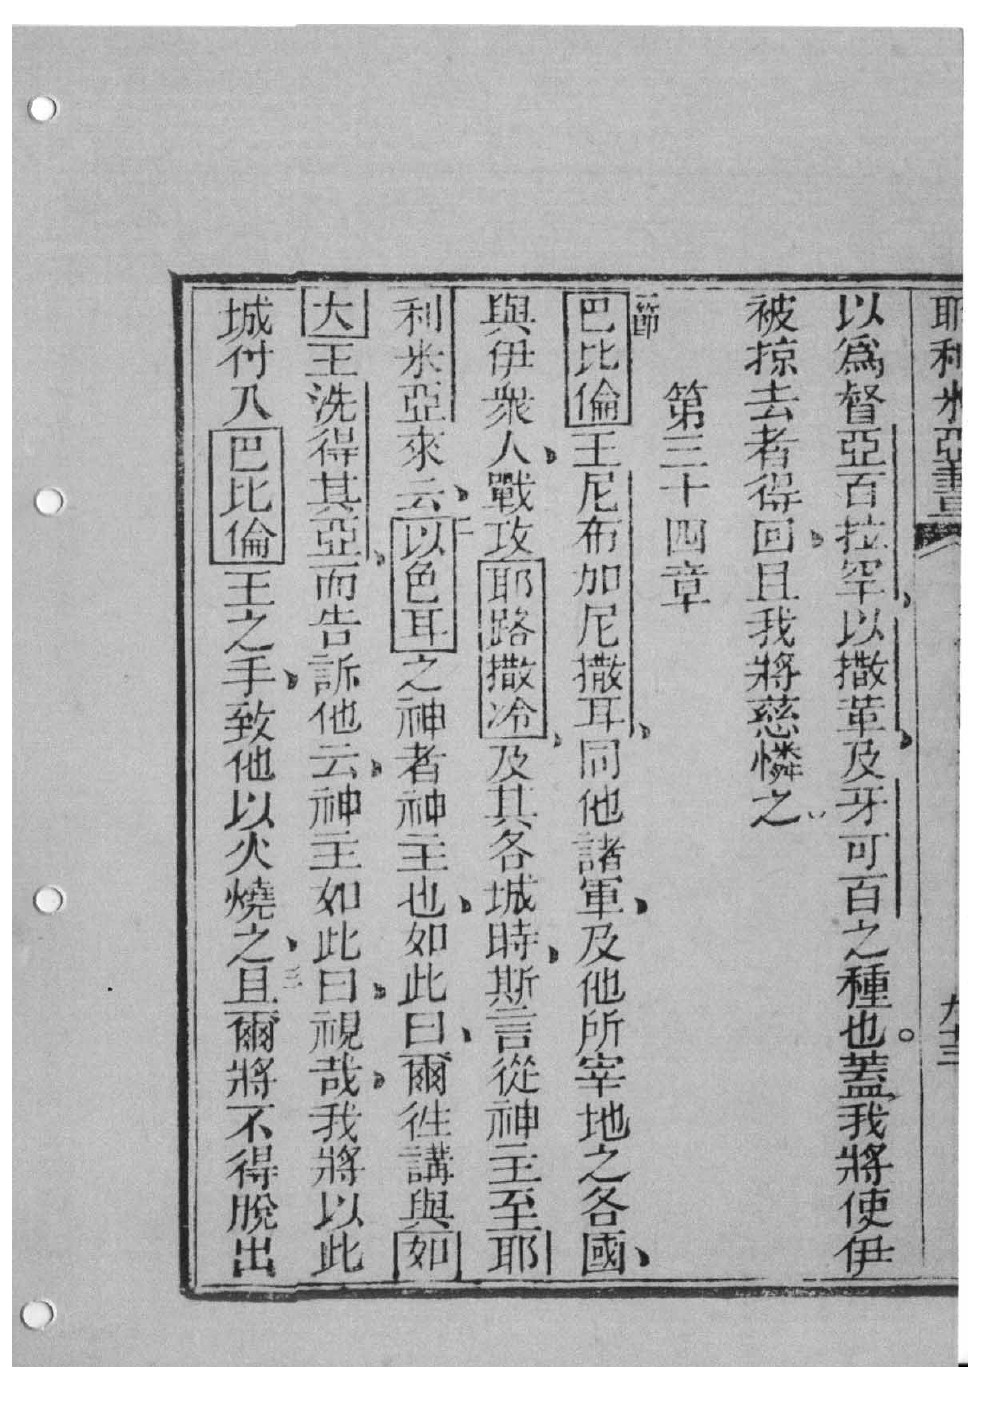 耶利米亞書 九十三
以爲督亞百拉罕、以撒革、及牙可百之種也。蓋我將使伊
被掠去者得回、且我將慈憐之
第三十四章
一節
巴比倫王尼布加尼撒耳、同他諸軍、及他所宰地之各國、
與伊衆人、戰攻耶路撒冷、及其各城時、斯言從神主至耶
利米亞來云、二以色耳之神者神主也、如此曰、爾徃講與如
大王洗得其亞、而告訴他云、神主如此曰、視哉、我將以此
城付入巴比倫王之手、致他以火燒之、三且爾將不得脫出